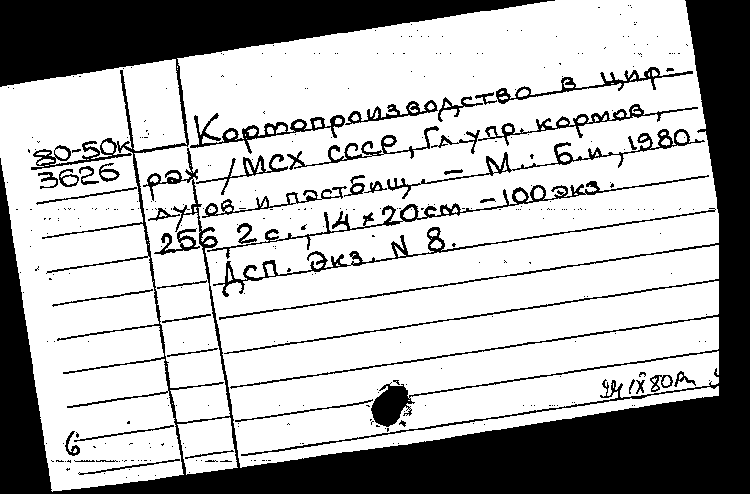 80-50к
3626
Кормопроизводство в циф-
рах /МСХ СССР, Гл. упр. кормов,
лугов и пастбищ. – М.: Б.и., 1980.–
256, 2 с.; 14×20 см. – 100 экз.
Дсп. Экз. N 8.
IX 80
6